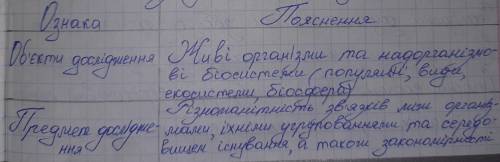 Ознака Пояснення
Об'єкти дослідження Живі організми та надорганізмо-
ві біосистеми (популяції, види,
екосистеми, біосфера)
Різноманітність зв'язків між організ-
Предмет дослідже- мами, їхніми угрупованнями та середо-
ння вищем існування, а також закономірності